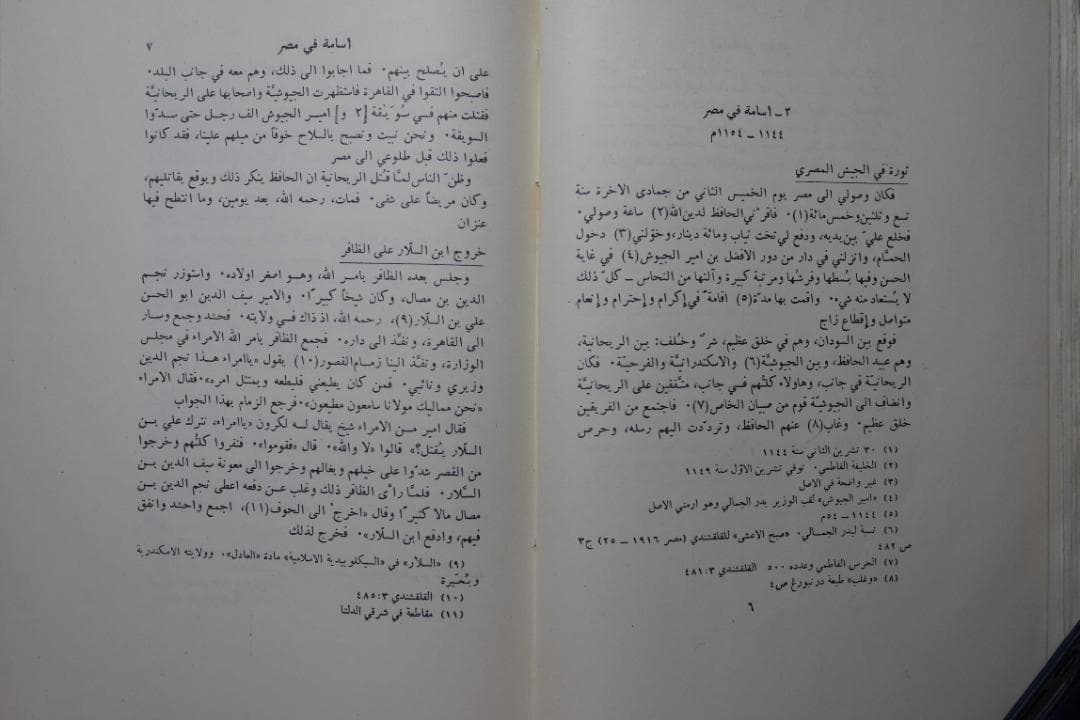 ٢ - أسامة في مصر
١١٤٤ - ١١٥٤م
ثورة في الجيش المصري
فكان وصولي الى مصر يوم الخميس الثاني من جمادى الاخرة سنة
تسع وثلثين وخمس مائة(١). فاقرّني الحافظ لدين الله(٢) ساعة وصولي.
فخلع عليّ بين يديه، ودفع لي تخت ثياب ومائة دينار، وخوّلني(٣) دخول
الحمّام، وانزلني في دار من دور الافضل بن امير الجيوش(٤) في غاية
الحسن وفيها بُسطها وفرشُها ومرتبة كبيرة وآلتها من النحاس - كلّ ذلك
لا يُستعاد منه شيء. واقمت بها مدّة(٥) اقامةً في إكرام وإحترام وإنعام
متواصل وإقطاع زاج
فوقع بين السودان، وهم في خلق عظيم، شرٌ وخُلف: بين الريحانية،
وهم عبيد الحافظ، وبين الجيوشيَّة(٦) والاسكندرانيَّة والفرحيّة. فكان
الريحانيّة في جانب، وهاولاء كلّهم في جانب، متّفقين على الريحانيَّة
وانضاف الى الجيوشيّة قوم من صبيان الخاص(٧). فاجتمع من الفريقين
خلق عظيم. وغاب(٨) عنهم الحافظ، وتردّدت اليهم رسله، وحرص
(١) ٣٠ تشرين الثاني سنة ١١٤٤
(٢) الخليفة الفاطمي. توفي تشرين الاوّل سنة ١١٤٩
(٣) غير واضحة في الاصل
(٤) «امير الجيوش» لقب الوزير بدر الجمالي وهو ارمني الاصل
(٥) ١١٤٤ - ٥٤م
(٦) نسبة لبدر الجمالي. «صبح الاعشى» للقلقشندي (مصر ١٩١٦ - ٢٥) ج٣
ص ٤٨٢
(٧) الحرس الفاطمي وعدده ٥٠٠ القلقشندي ٣:٤٨١
(٨) «وغلب» طبعة درنبورغ ص٤
٦
أسامة في مصر ٧
على ان يُصلح بينهم. فما اجابوا الى ذلك، وهم معه في جانب البلد.
فاصبحوا التقوا في القاهرة فاستظهرت الجيوشيَّة واصحابها على الريحانيَّة
فقتلت منهم في سُوَيقة [٢ و] امير الجيوش الف رجل حتى سدّوا
السويقة. ونحن نبيت ونصبح بالسلاح خوفاً من ميلهم علينا، فقد كانوا
فعلوا ذلك قبل طلوعي الى مصر
وظنّ الناس لمّا قُتل الريحانية ان الحافظ ينكر ذلك ويوقع بقاتليهم،
وكان مريضاً على شفى. فمات، رحمه الله، بعد يومين، وما انتطح فيها
عنزان
خروج ابن السلّار على الظافر
وجلس بعده الظافر بامر الله، وهو اصغر اولاده. واستوزر نجم
الدين بن مصال، وكان شيخاً كبيراً. والامير سيف الدين ابو الحسن
علي بن السلّار(٩)، رحمه الله، اذ ذاك في ولايته. فحشد وجمع وسار
الى القاهرة، ونفّذ الى داره. فجمع الظافر بامر الله الامراء في مجلس
الوزارة، ونفّذ الينا زمام القصور(١٠) يقول «ياامراء هذا نجم الدين
وزيري ونائبي. فمن كان يطيعني فليطعه ويمتثل امره». فقال الامراء
«نحن مماليك مولانا سامعون مطيعون». فرجع الزمام بهذا الجواب
فقال امير من الامراء شيخ يقال له لكرون «ياامراء، نترك علي بن
السلّار يُقتل؟» قالوا «لا والله». قال «فقوموا». فنفروا كلّهم وخرجوا
من القصر شدّوا على خيلهم وبغالهم وخرجوا الى معونة سيف الدين بن
السَّلار. فلمّا رأى الظافر ذلك وغلب عن دفعه اعطى نجم الدين بن
مصال مالا كثيراً وقال «اخرج الى الحوف(١١)، اجمع واحشد وانفق
فيهم، وادفع ابن السلار». فخرج لذلك
(٩) «السلار» في «السيكلوبيدية الاسلامية» مادة «العادل». وولايته الاسكندرية
وبُحَيرة
(١٠) القلقشندي ٣:٤٨٥
(١١) مقاطعة في شرقي الدلتا